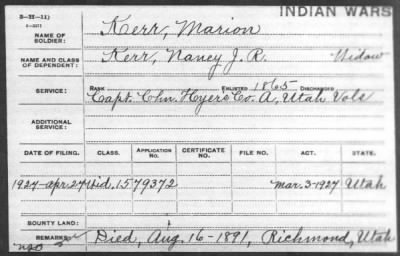 INDIAN WARS
NAME OF SOLDIER: Kerr, Marion
NAME AND CLASS OF DEPENDENT: Kerr, Nancy J. R. Widow
SERVICE: RANK ENLISTED 1865 DISCHARGED
Capt. Chn. Hyer's Co. A, Utah Vols
ADDITIONAL SERVICE:
DATE OF FILING. CLASS. APPLICATION No. CERTIFICATE No. FILE NO. ACT. STATE.
1927-Apr. 27 Wid. 1579372 Mar. 3-1927 Utah
BOUNTY LAND:
REMARKS: Died, Aug. 16-1891, Richmond, Utah